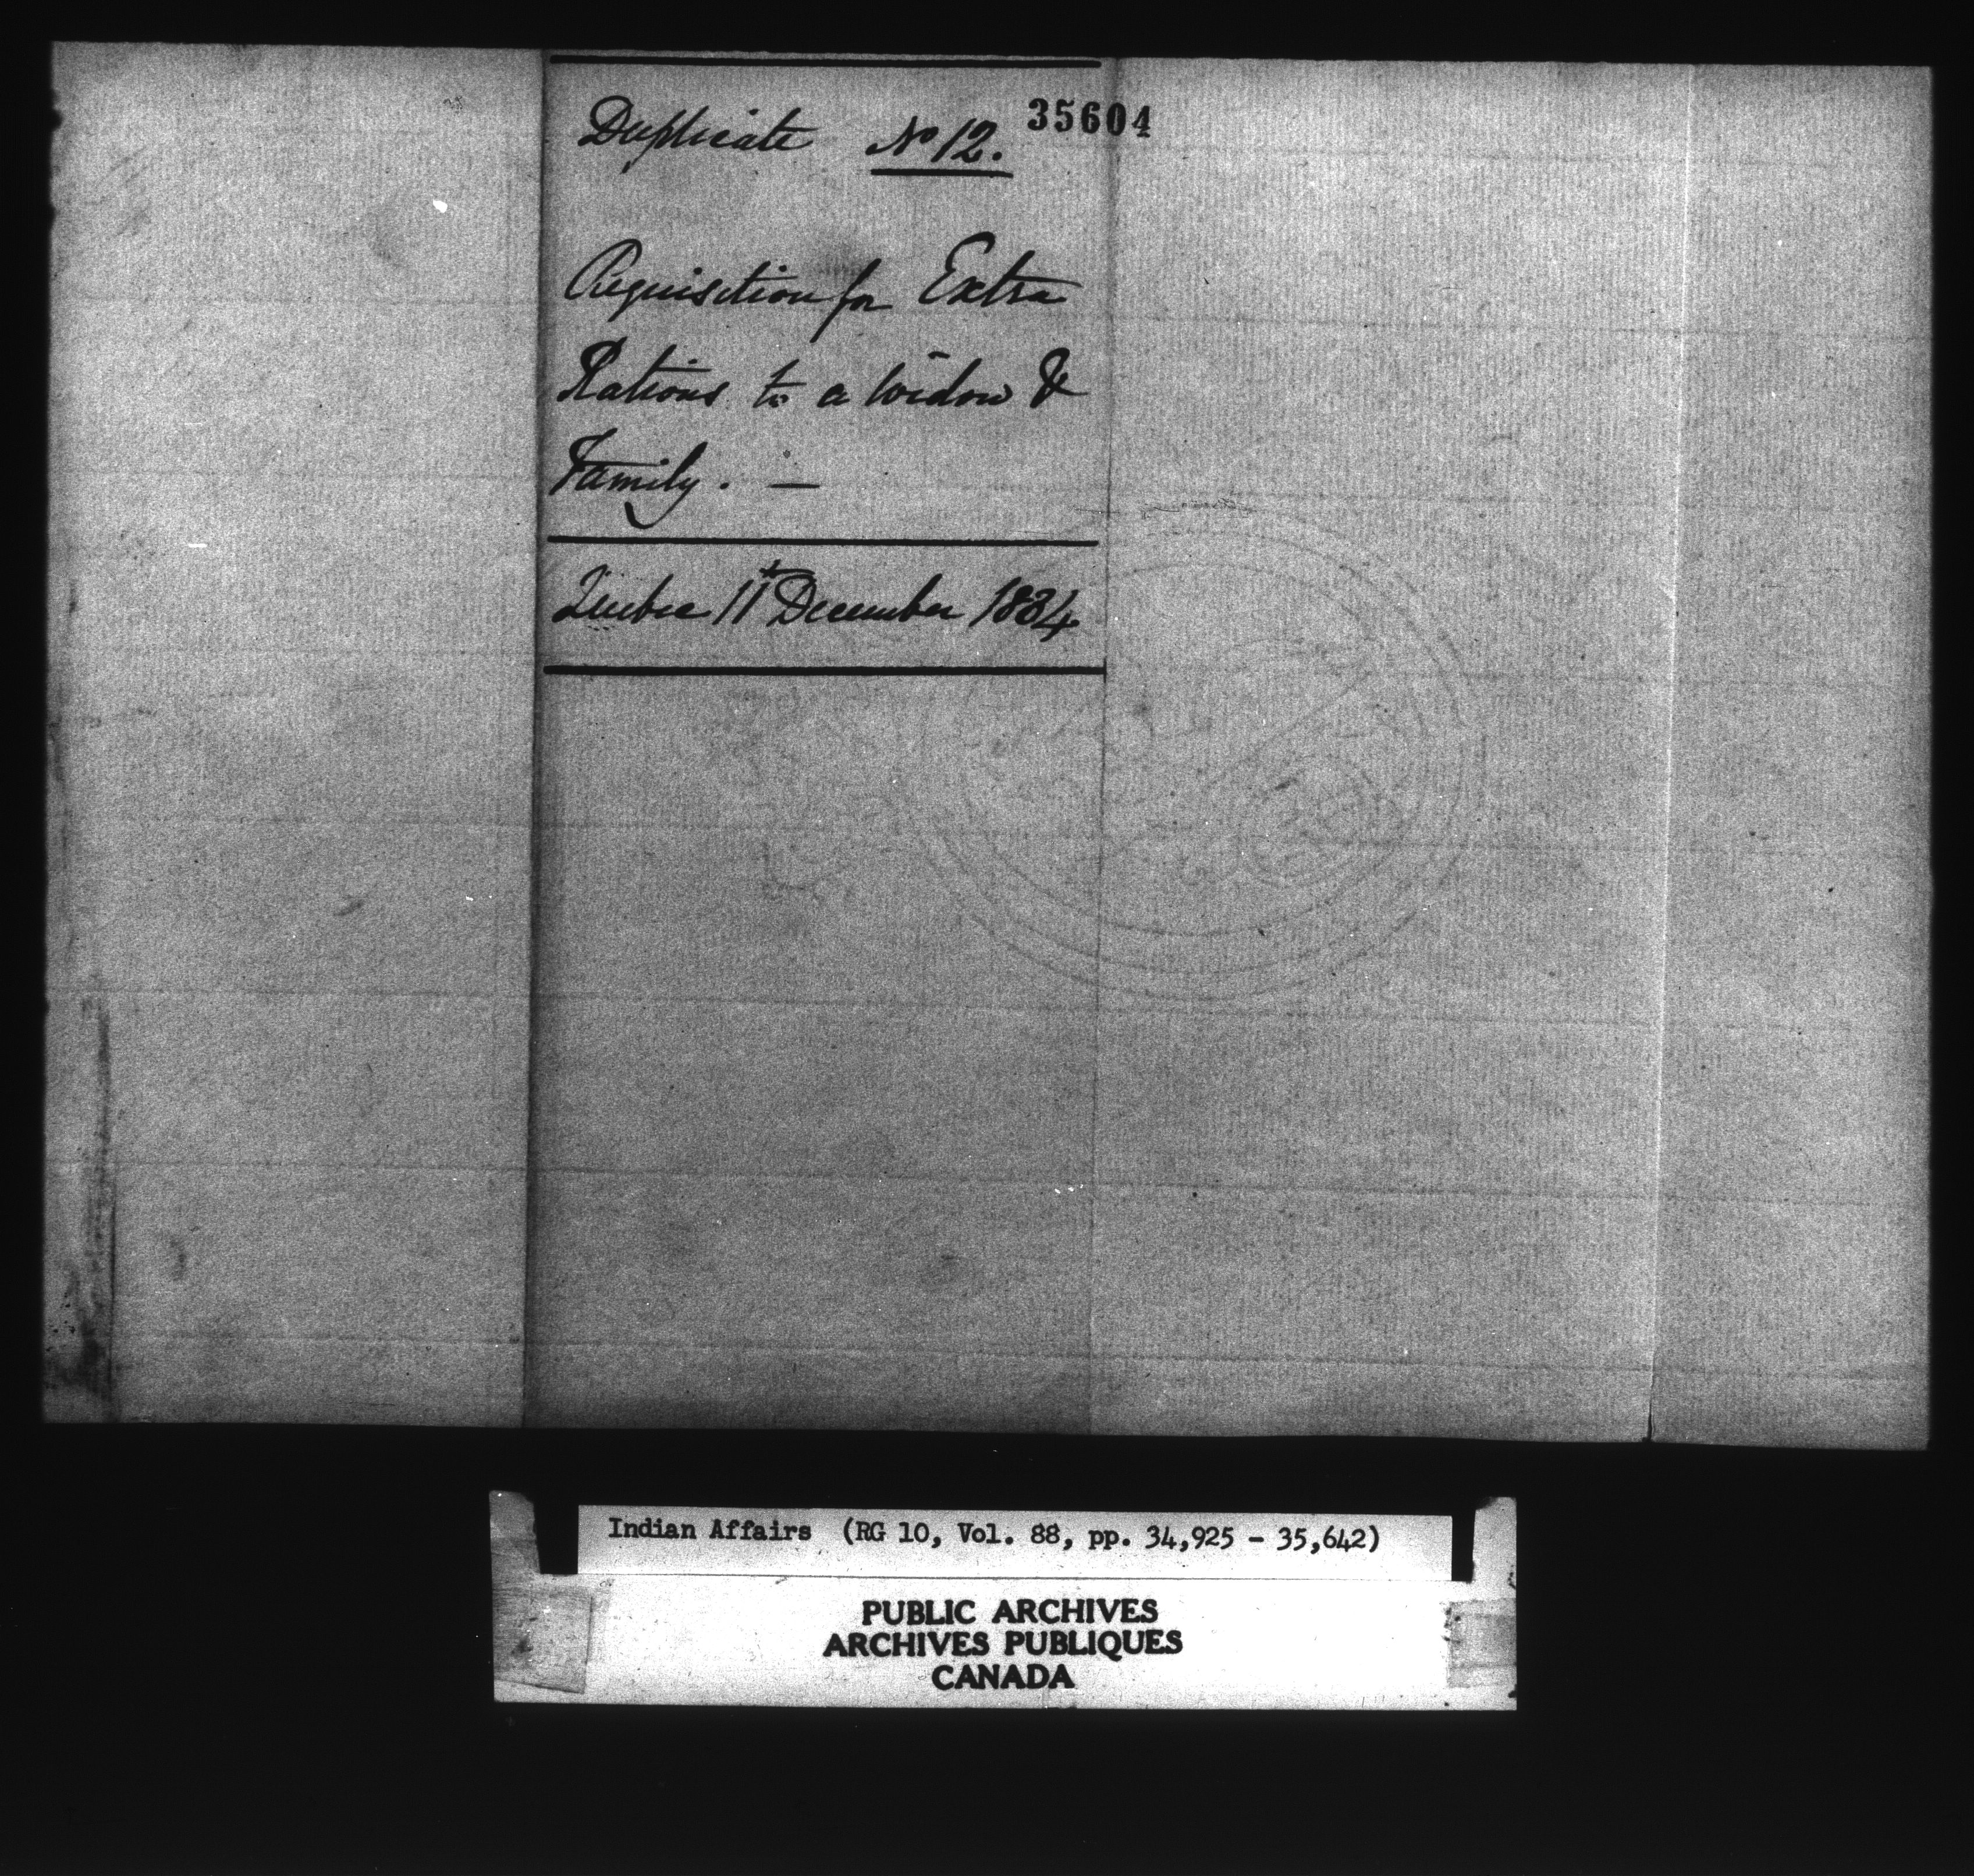 Duplicate No 12.
35604
Requisition for Extra
Rations to a Widow &
Family. —
Quebec 11th December 1834.
Indian Affairs (RG 10, Vol. 88, pp. 34,925 - 35,642)
PUBLIC ARCHIVES
ARCHIVES PUBLIQUES
CANADA